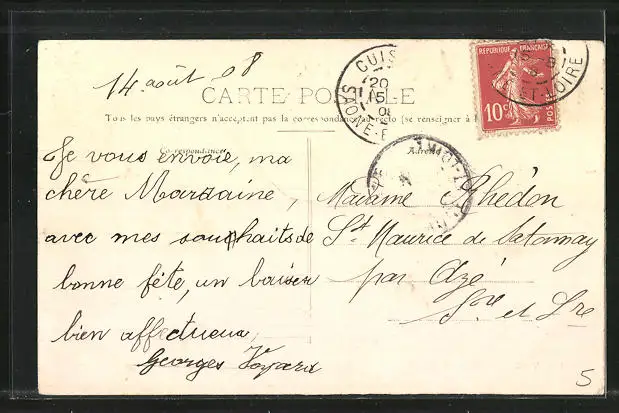 14 août 08
CARTE POSTALE
Tous les pays étrangers n'acceptent pas la correspondance au recto (se renseigner à
Correspondance
Adresse
Je vous envoie, ma
chère Marraine,
avec mes souhaits de
bonne fête, un baiser
bien affectueux,
Georges Voyard
Madame Phédon
St Maurice de Satonnay
par Azé
Sne et Lre
CUIS
20
15
08
SAONE-E
RÉPUBLIQUE FRANÇAISE
10c
POSTES
ET-LOIRE
5